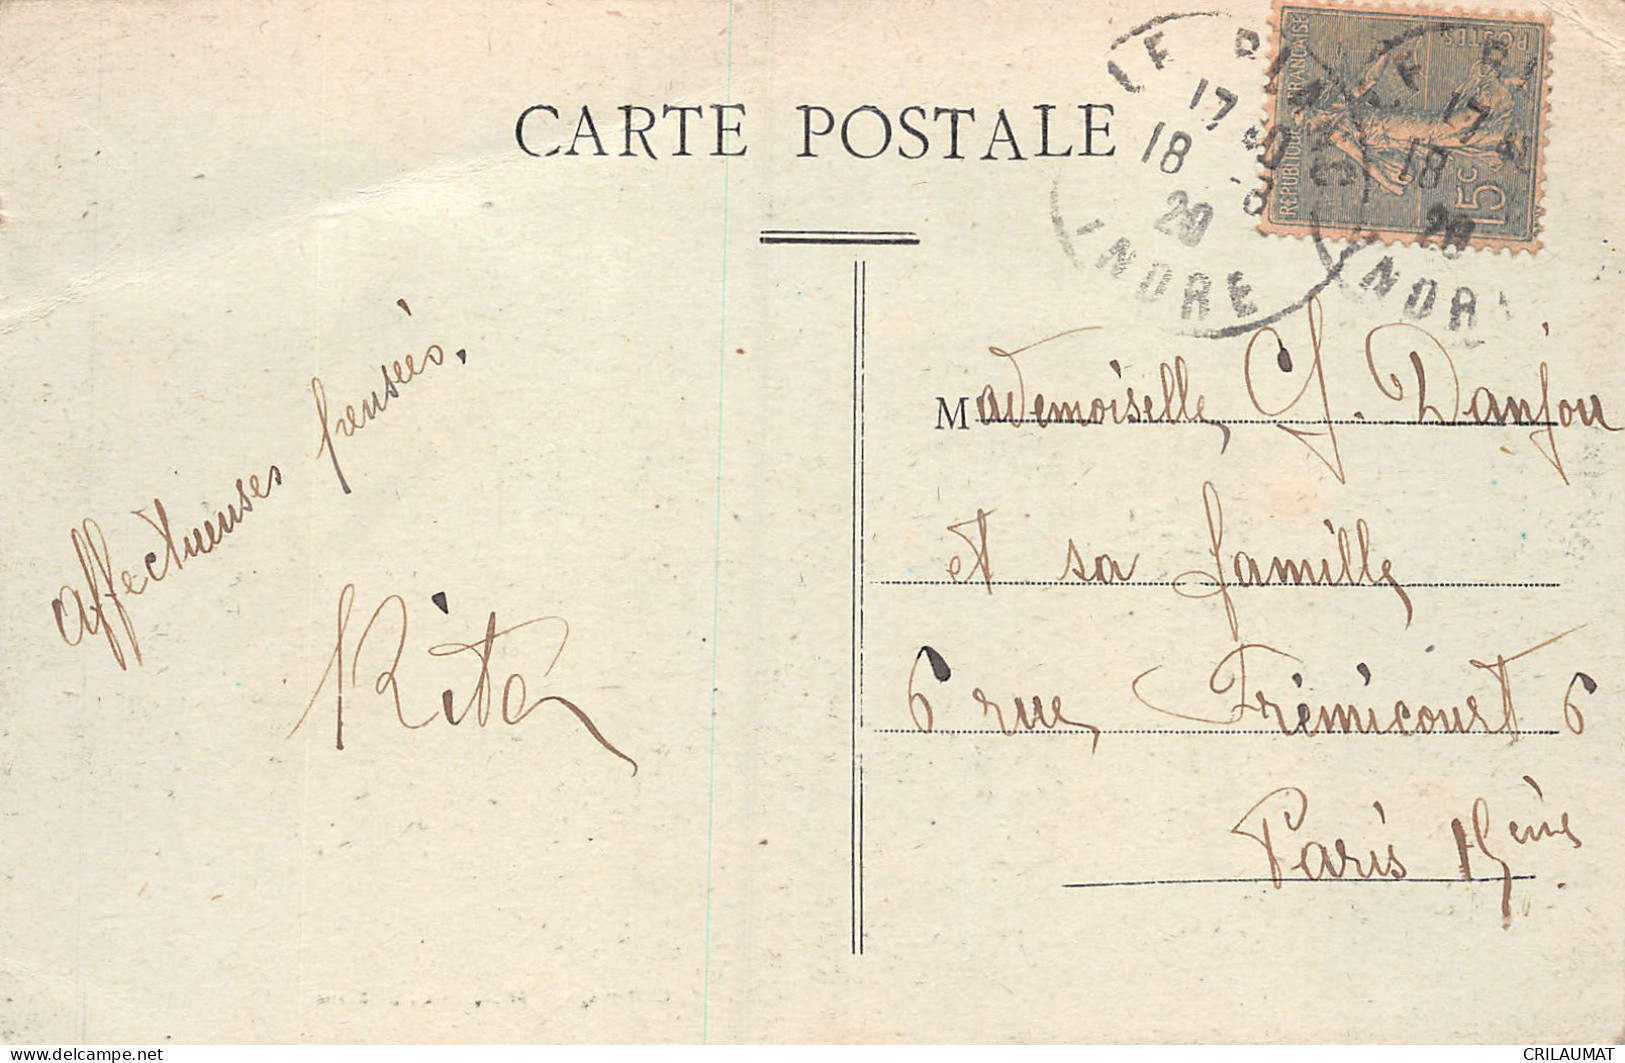 CARTE POSTALE
RÉPUBLIQUE FRANÇAISE
POSTES
15c
LE
17
18
20
INDRE
17
18
20
INDR
affectueuses pensées.
Rita
Mademoiselle G. Danjou
et sa famille
6 rue Frémicourt 6
Paris 15ème
www.delcampe.net
CRILAUMAT